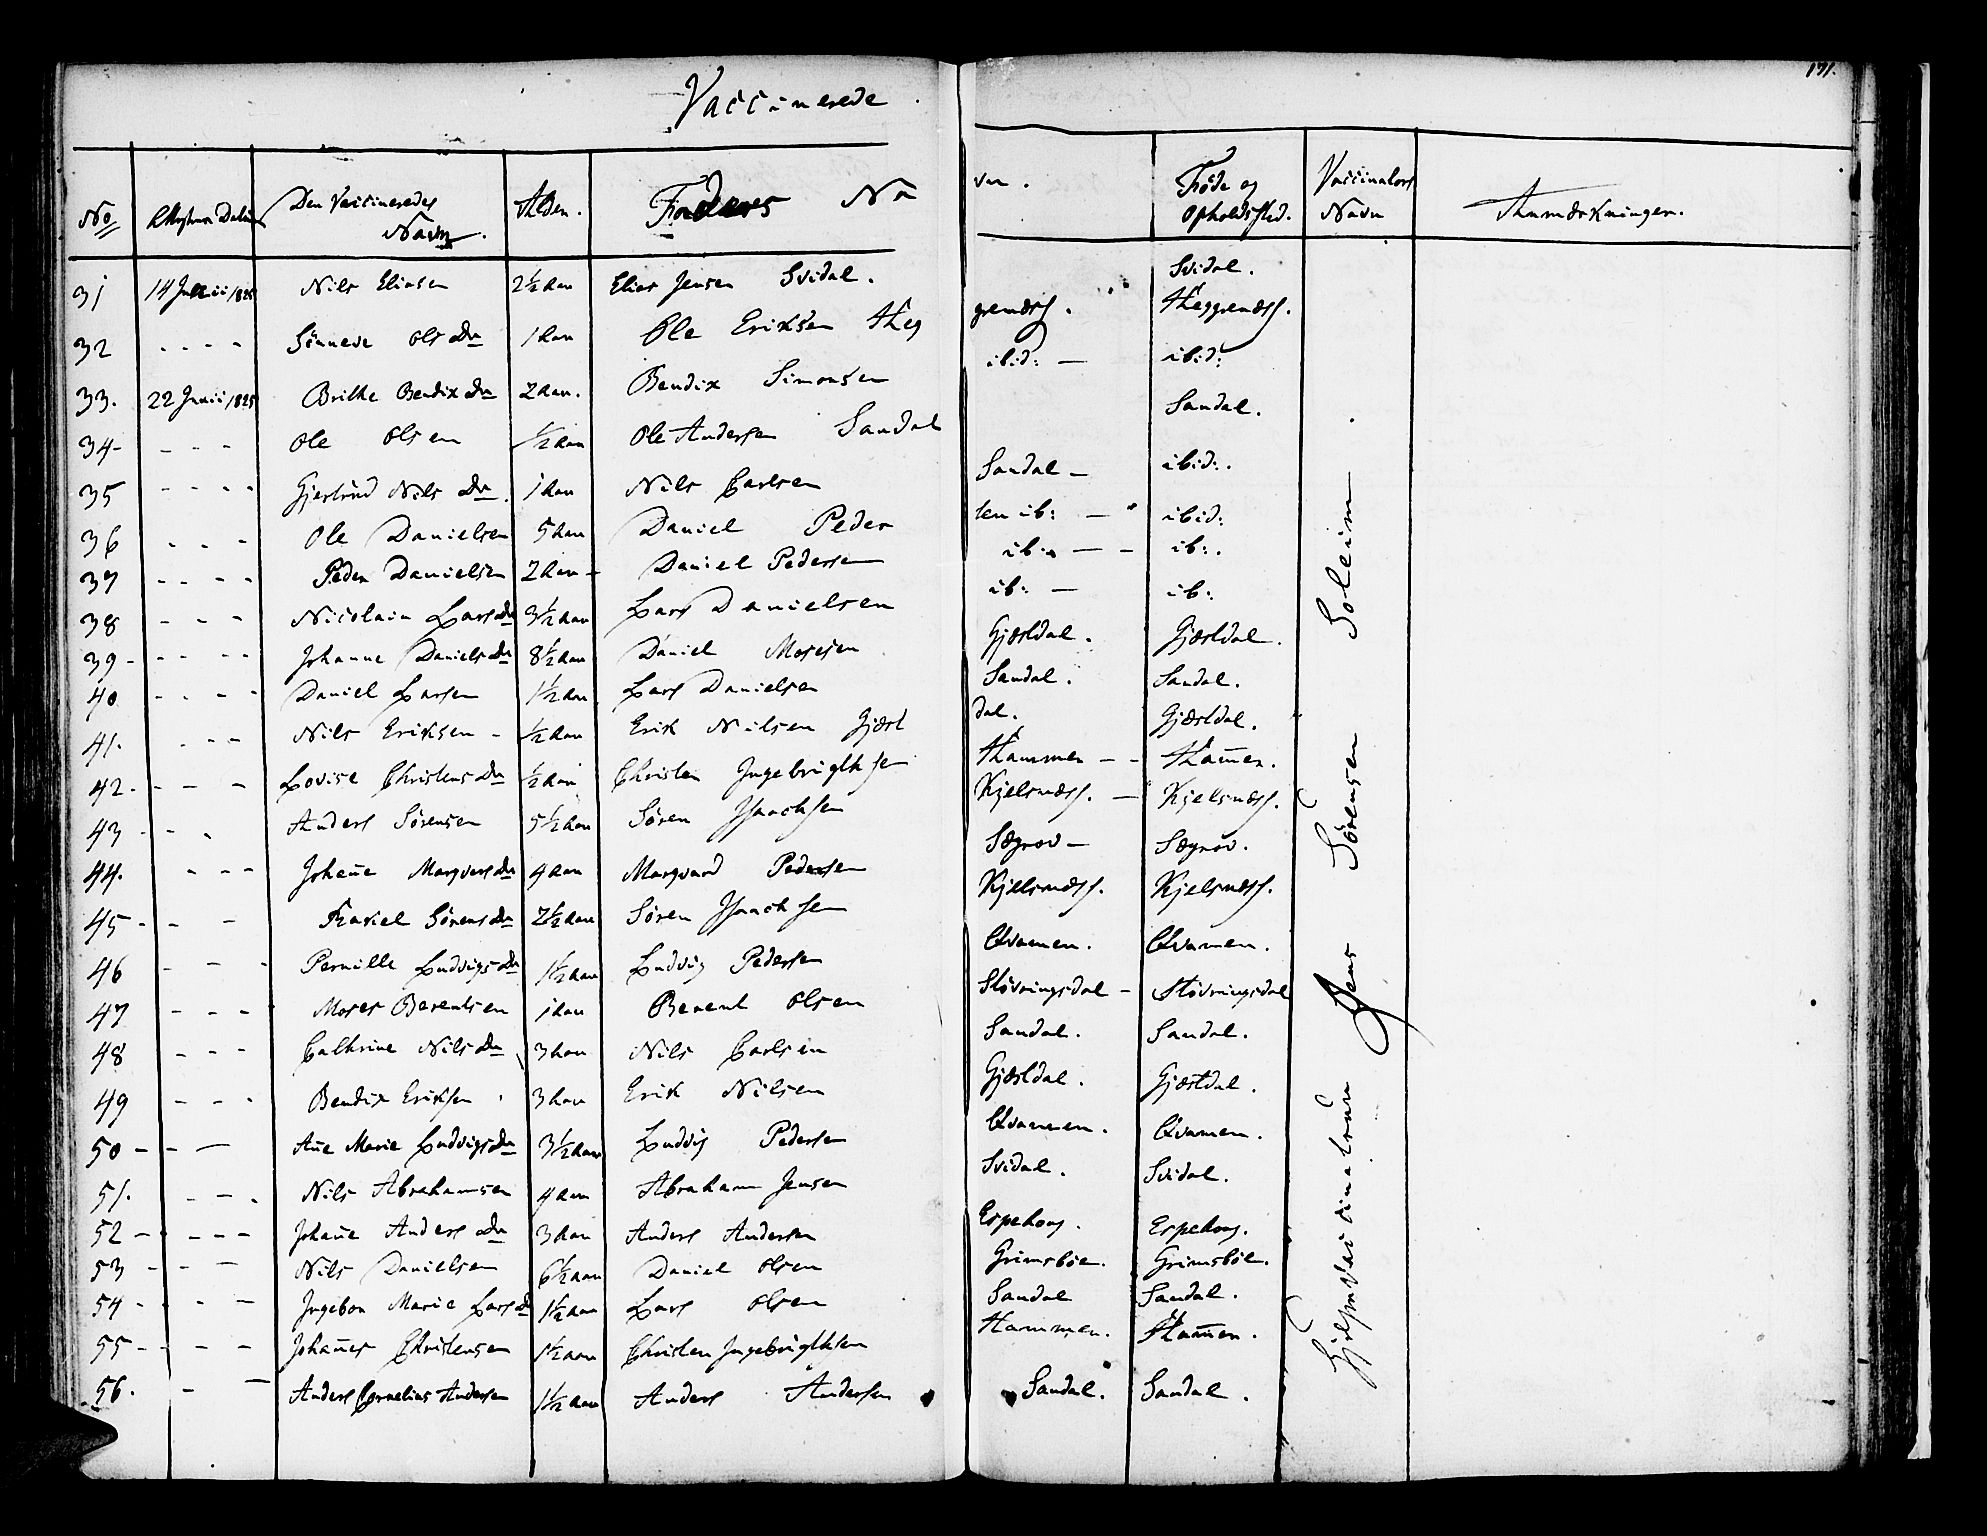 Vaccinerede
191.
No Attestens Datum Den Vaccineredes Navn. Alder. Faders Navn. Føde og Opholdssted. Vaccinators Navn Anmærkninger.
31 14 Junii 1825 Nils Eliasen 2½ Aar Elias Jensen Svidal. Svidal.
32 - - - - Sünneve Ols Dr 1 Aar Ole Eriksen Heggrenæss. Heggrenæss.
33. 22 Junii 1825 Brithe Bendix Dr 2 Aar. Bendix Simonsen ibid: — ibid:
34- - - - Ole Olsen ½ Aar Ole Andersen Sandal Sandal.
35 - - - - Gjertrud Nils Dr. 1 Aar Nils Carlsen Sandal — ibid:.
36 - - - Ole Danielsen 5 Aar Daniel Peder sen ib: — ibid:
37 - - - - Peder Danielsen 2 Aar - Daniel Pedersen ib: — - ib:.
38 - - - Nicolain Lars Dr 3½ Aar Lars Danielsen ib: — ib:
39 - - - - - Johanne Daniels Dr 8½ Aar Daniel Mosesen Gjæstdal. Gjæstdal.
40 - - - - Daniel Larsen 1½ Aar Lars Danielsen Sandal. Sandal.
41. - - - Nils Eriksen - ½ Aar Erik Nilsen Gjæst dal. Gjæstdal.
42. - - - Lovise Christens Dr ½ Aar Christen Ingebrigthsen Hammen - - Ham̄en.
43 - - - Anders Sørensen 5½ Aar Søren Isaachsen Kjelsnæss. — Kjelsnæss.
44. - - - Johan̄e Marqvards Dr 4 Aar Marqvard Pedersen Sægrov — Sægrov.
45 - - - Rakel Sørens Dr 2½ Aar Søren Isaachsen Kjelsnæss. Kjelsnæss.
46 - - - Pernille Ludvigs Dr 1½ Aar Ludvig Pedersen Qvamen. Qvamen.
47 - - - Moses Berentsen 1 Aar Berent Olsen Støvringsdal - Støvringsdal
48 - - - Cathrine Nils Dr 3 Aar Nils Carlsen Sandal. Sandal.
49 - - - Bendix Eriksen 3 Aar Erik Nilsen Gjæstdal. Gjæstdal.
50 - - — An̄e Marie Ludvigs Dr 3½ Aar Ludvig Pedersen Qvammen. Qvamen.
51. - - - Nils Abrahamsen 4 Aar Abraham Jensen Svidal. Svidal.
52 - - - - Johan̄e Anders Dr 3 Aar Anders Andersen Espehoug. Espehoug.
53 - - - Nils Danielsen 6½ Aar Daniel Olsen Grimsbøe. Grimsbøe.
54 - - - Ingebor Marie Lars D 1½ Aar Lars Olsen Sandal Sandal.
55 - - - - Johan̄es Christensen 1½ Aar Christen Ingebrigthsen Hammen. Ham̄en.
56. - — Anders Cornelius Andersen 1½ Aar Anders Andersen Sandal. Sandal.
Hjelpevaccinateur Jens Sørensen Soleim